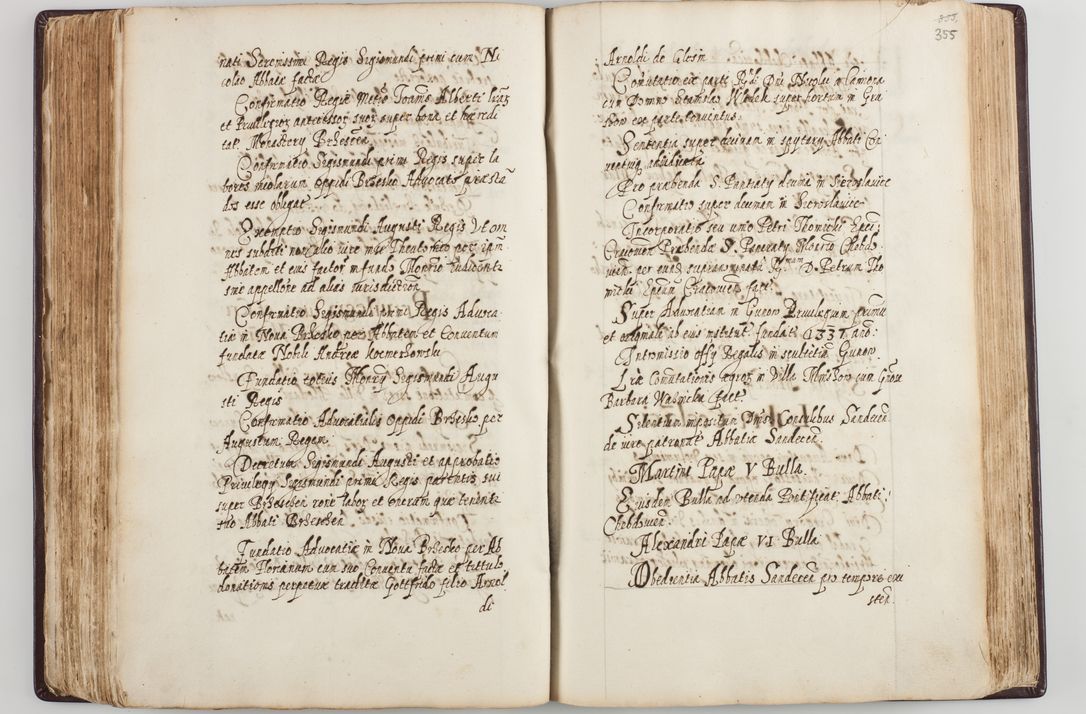 nati Serenissimi Regis Sigismundi primi cum Ni
colao Abbate factae
Confirmatio Regiae Joannis Alberti
et Privilegior antecessor suor super bona et haeredi
tat Monastery Brzescen
Confirmatio Sigismundi primi Regis super la
bores incolarum oppidi Brzesko Advocato praestā
dos esse obligat
Exemptio Sigismundi Augusti Regis Ut om
nes subditi non alio iure nisi Theutonico per ipm
Abbatem et eius factor in fundo
sine appellōne ad alias iurisdiction
Confirmatio Sigismundi primi Regis Advoca
tiae in Nova Brzesko per Abbatem et Conventum
fundatae Nobili Andreae Kocmerzowski
Fundatio totius Sigismundi Augu
sti Regis
Confirmatio Advocatialis oppidi Brzesko per
Augustum Regem
Decretum Sigismundi Augusti et approbatio
Privilegy Sigismundi primi Regis parentis sui
super Brzescen labor et onerum quae tenent
suo Abbati Brzescen
Fundatio Advocatiae in Nova Brzesko per Ab
batem Florianum cum suo Conventu facta et tittulo
donationis perpetuae traditae Gottfrido filio Arnol
di
355
355
Arnoldi de
Comutatio ex parte Rdi Dni Nicolai
cum Domno Stanislao super hortum in Gra
bow ex parte Conventus
Sententia super decimam in Abbati
adiudicata
Pro praebenda S. Pancraty decima in Sieroslavice
Confirmatio super decimam in Sieroslavice
Incorporatio seu unio Petri Thomicki Epi
Cracovien Praebenda S. Pancraty Chebdo
vien per suprannominatū Rmum D. Petrum Tho
micki Epum Cracovien fact
Super Advocatiam in Gunow Privilegium primū
et ab eius institut fundat 1337 anō
Intromissio offy Regalis in scultetiam Gunow
Lrae Comutationis agror in Villa cum Gnosa
Barbara fact
Silentium impositum Dnis Consulibus Sandecen
de iure patronat Abbatiae Sandecen
Martini Papae V Bulla
Eiusdem Bulla ad utenda Pontificat Abbati
Chebdovien
Alexandri Papae VI Bulla
Obedientia Abbatis Sandecen pro tempore exi
sten